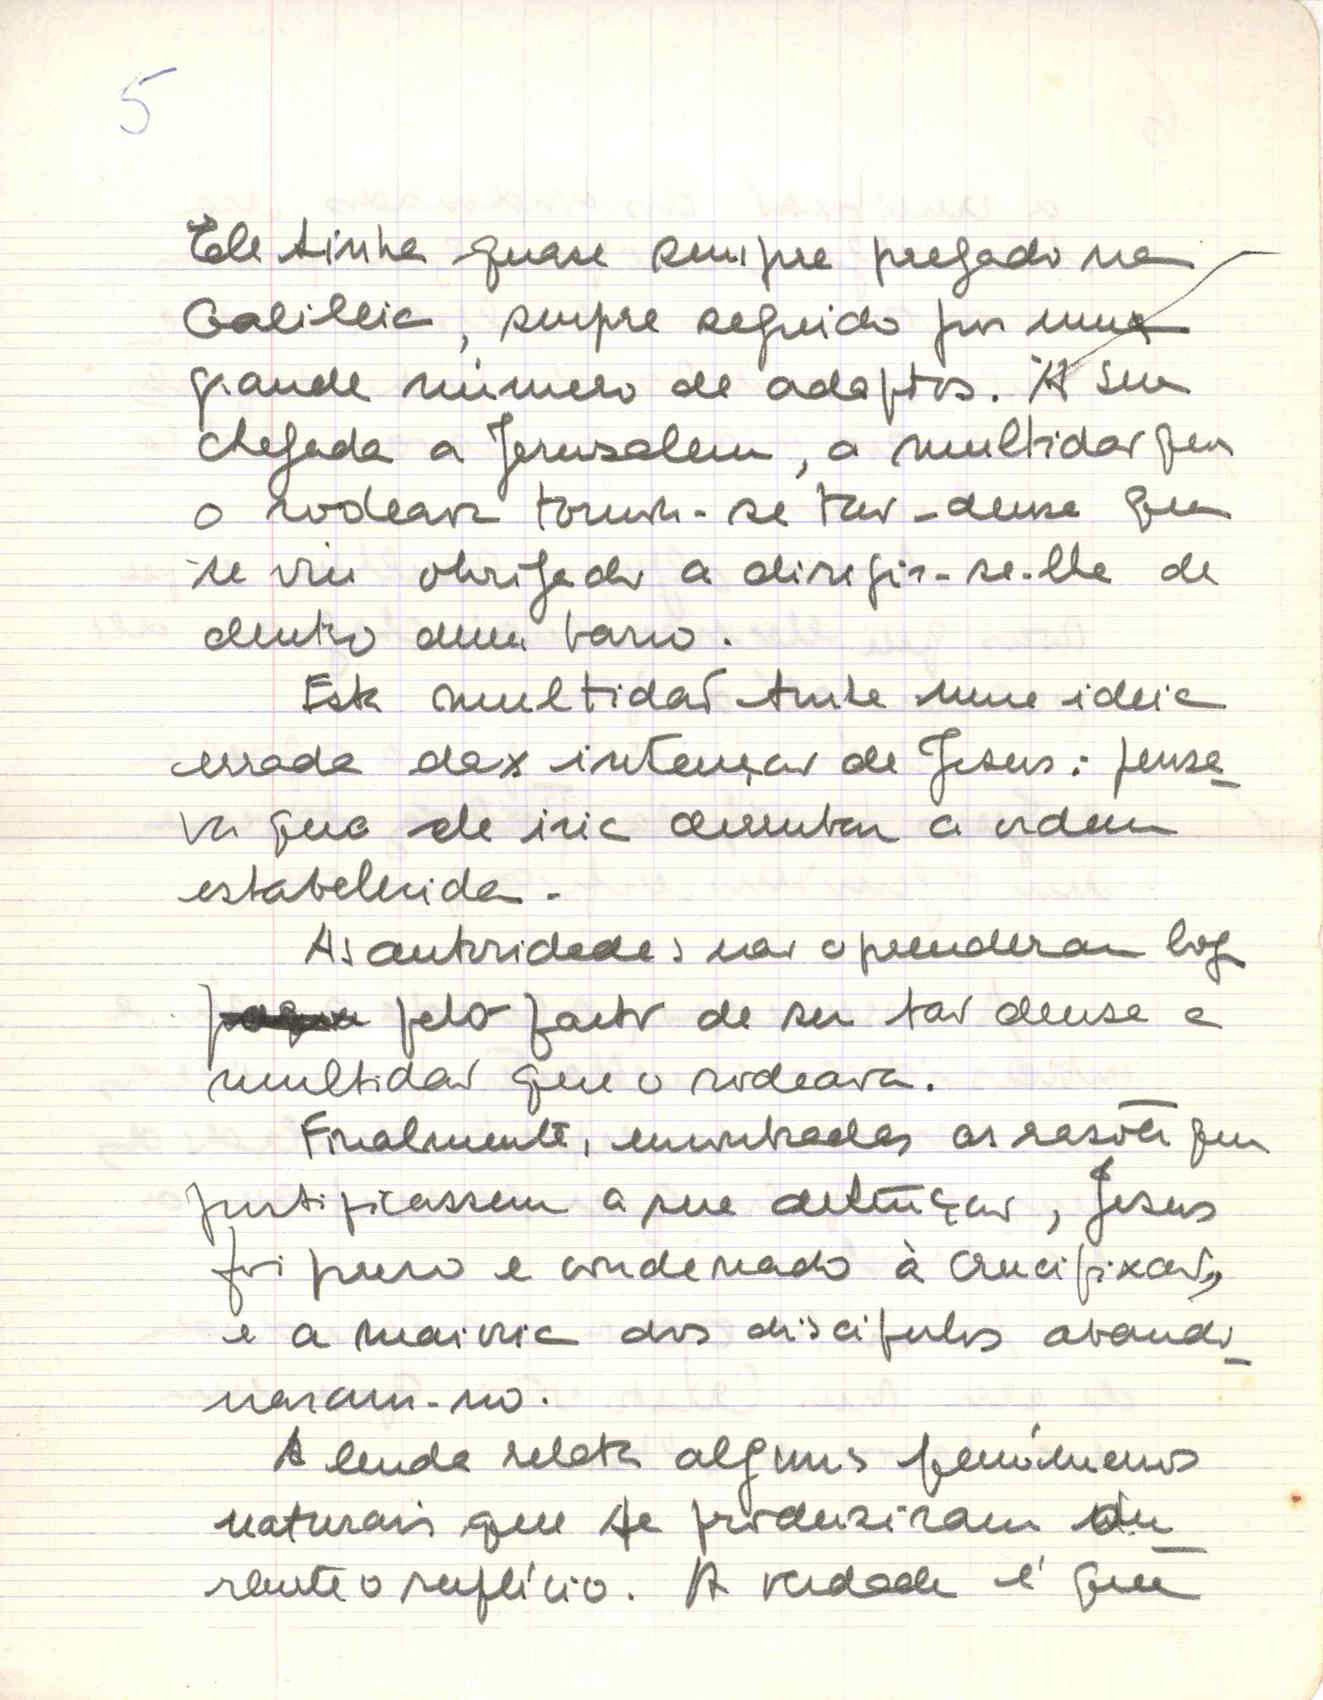 5
Ele tinha quase sempre pregado na
Galileia, sempre seguido por um
grande número de adeptos. À sua
chegada a Jerusalem, a multidão que
o rodeava tornou-se tão densa que
se viu obrigado a dirigir-se-lhe de
dentro dum barco.
Esta multidão tinha uma ideia
errada da intenção de Jesus: pensa-
va que ele iria derrubar a ordem
estabelecida.
As autoridades não o prenderam logo
pelo facto de ser tão densa a
multidão que o rodeava.
Finalmente, encontradas as razões que
justificassem a sua detenção, Jesus
foi preso e condenado à crucifixão,
e a maioria dos discípulos abando-
naram-no.
A lenda relata alguns fenómenos
naturais que se produziram du-
rante o suplício. A verdade é que